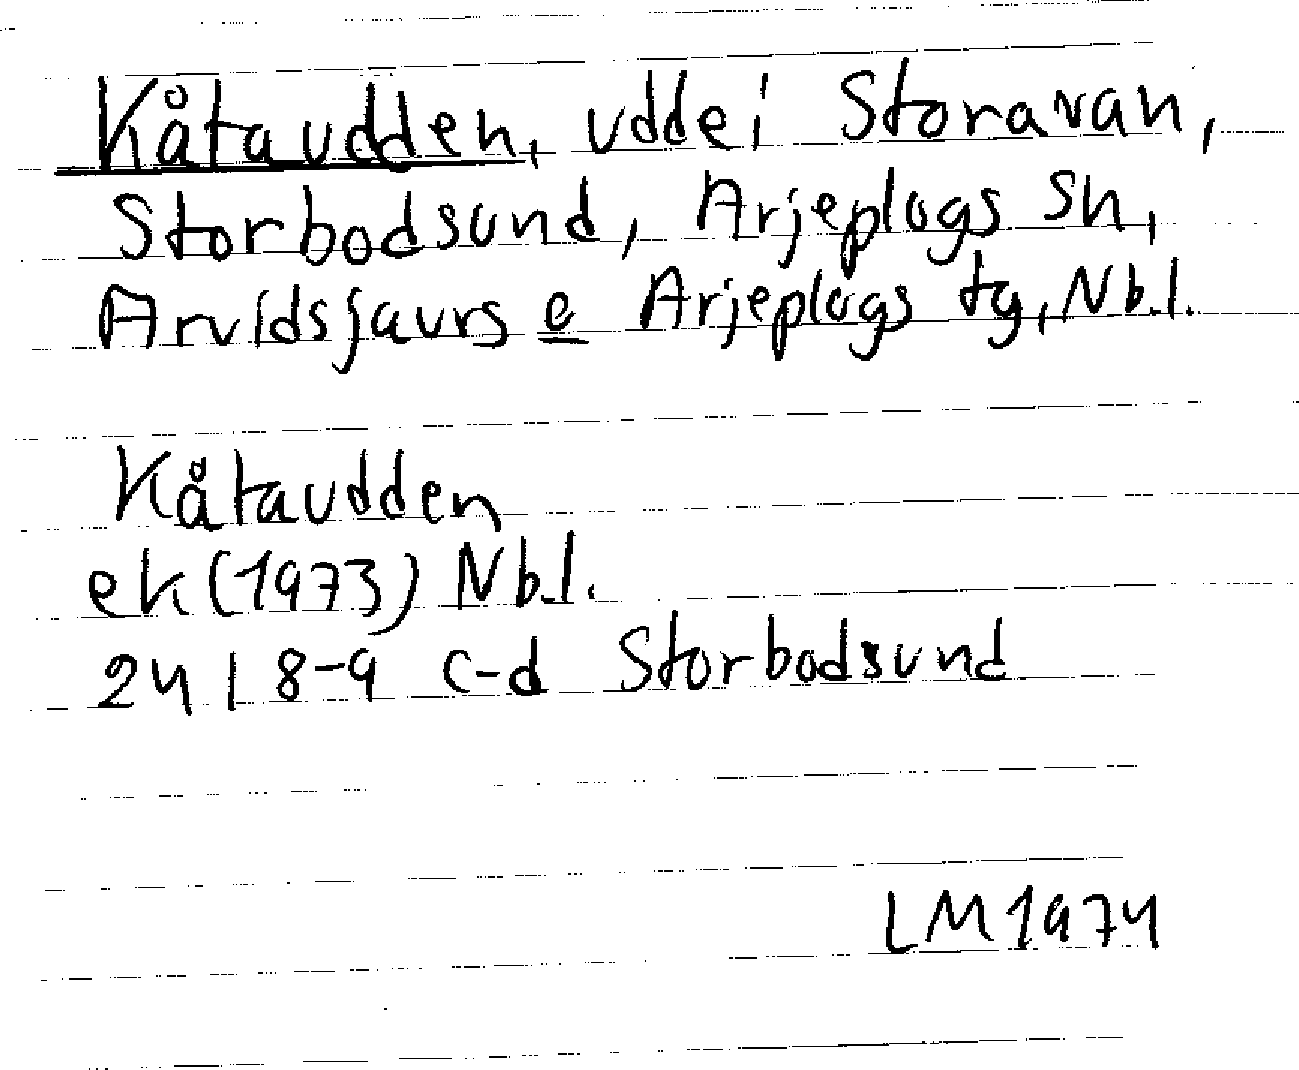 Kåtaudden, udde i Storavan,
Storbodsund, Arjeplogs sn,
Arvidsjaurs o Arjeplogs tg, Nb.l.
Kåtaudden
ek (1973) Nb.l.
24 I 8-9 c-d Storbodsund
LM 1974